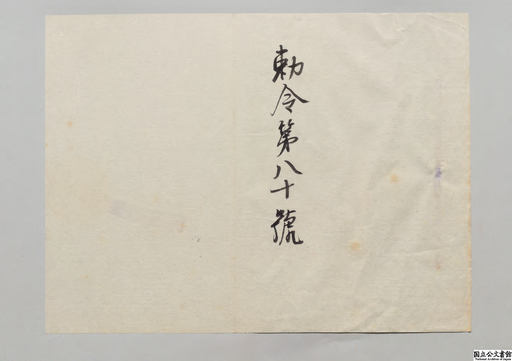 勅令第八十號
国立公文書館
National Archives of Japan